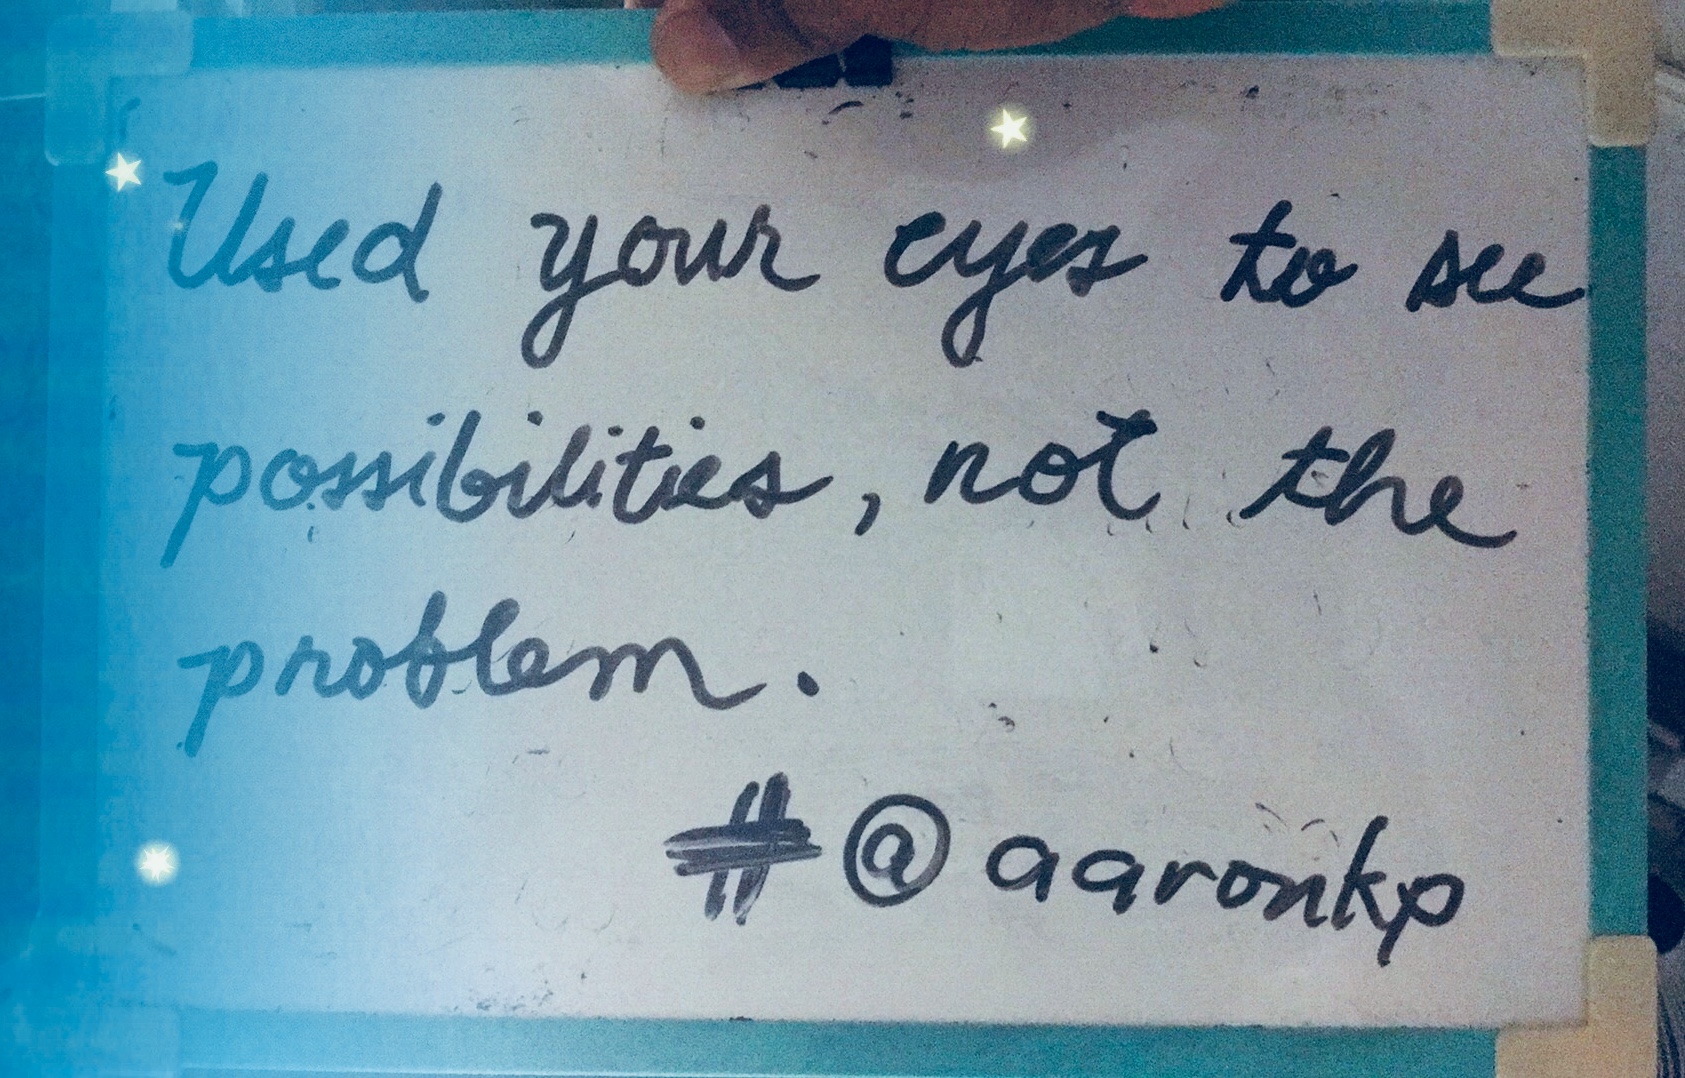 Used your eyes to see
possibilities, not the
problem.
#@aaronkp